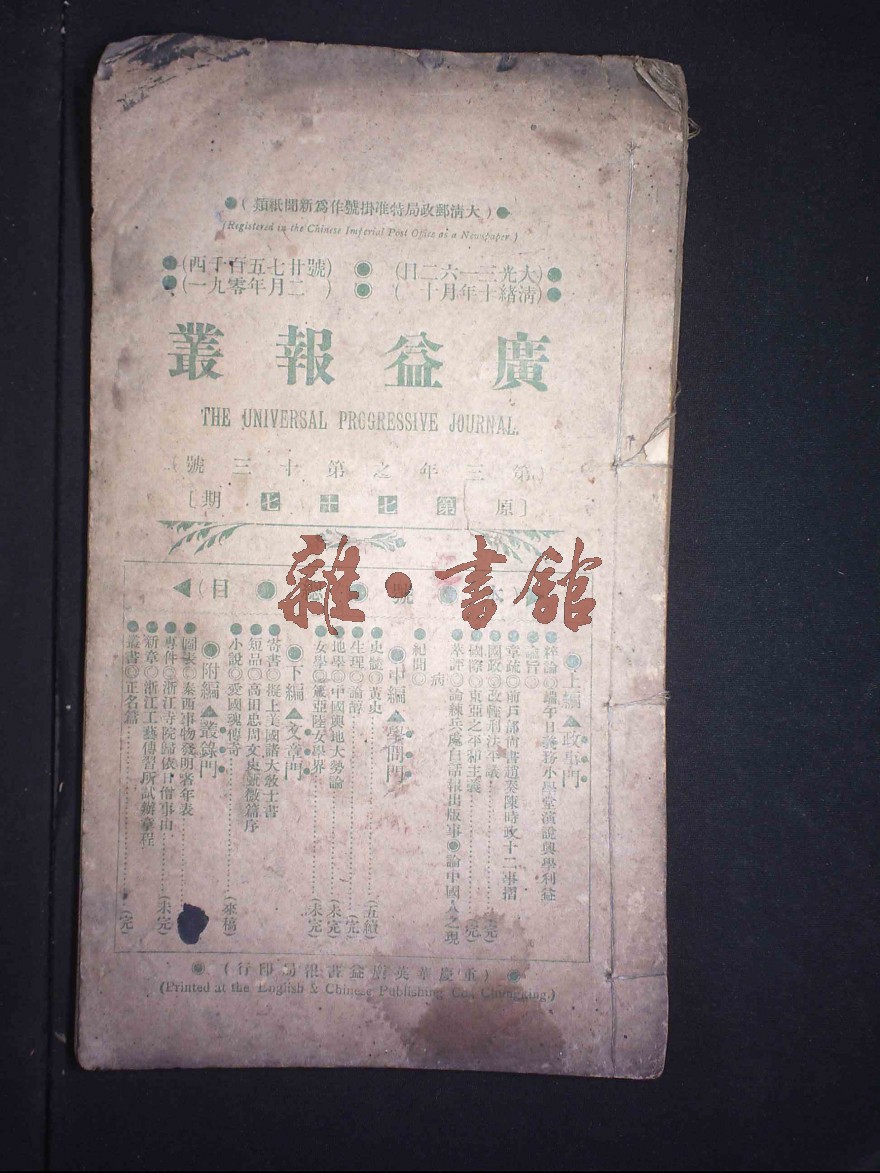 ●(大清郵政局特准掛號作爲新聞紙類)●
(Registered in the Chinese Imperial Post Office as a Newspaper.)
●(大光三一六二日)◉(西千百五七廿號)●
●(清緒十年月十)◉(一九零年月二)●
廣益報叢
THE UNIVERSAL PROGRESSIVE JOURNAL.
(第三年之第十三號)
[原第七十七期]
雜·書館
本號 目
◉上編▲政事門
●粹論◎端午日義務小學堂演說興學利益
●諭旨◎
●章疏◎前戶部尚書趙奏陳時政十二事摺
●國政◎改輕刑法平議(完)
●國際◎東亞之平和主義(完)
●萃評◎論練兵處白話報出版事◉論中國人之現
病
●紀聞◎
◉中編▲學問門
●史髓◎黃史(五續)
●生理◎論醇(完)
●地學◎中國輿地大勢論(未完)
●女學◎箴亞陸女學界(未完)
◉下編▲文章門
●寄書◎擬上美國諸大敎士書
●短品◎高田忠周文史獻徵篇序
●小說◎愛國魂傳奇(來稿)
◉附編▲叢錄門
●圖表◎泰西事物發明者年表
●專件◎浙江寺院歸依日僧事由(未完)
●新章◎浙江工藝傳習所試辦章程
●叢書◎正名篇(完)
◉(重慶華英廣益書報局印行)◉
(Printed at the English & Chinese Publishing Co., Chungking.)